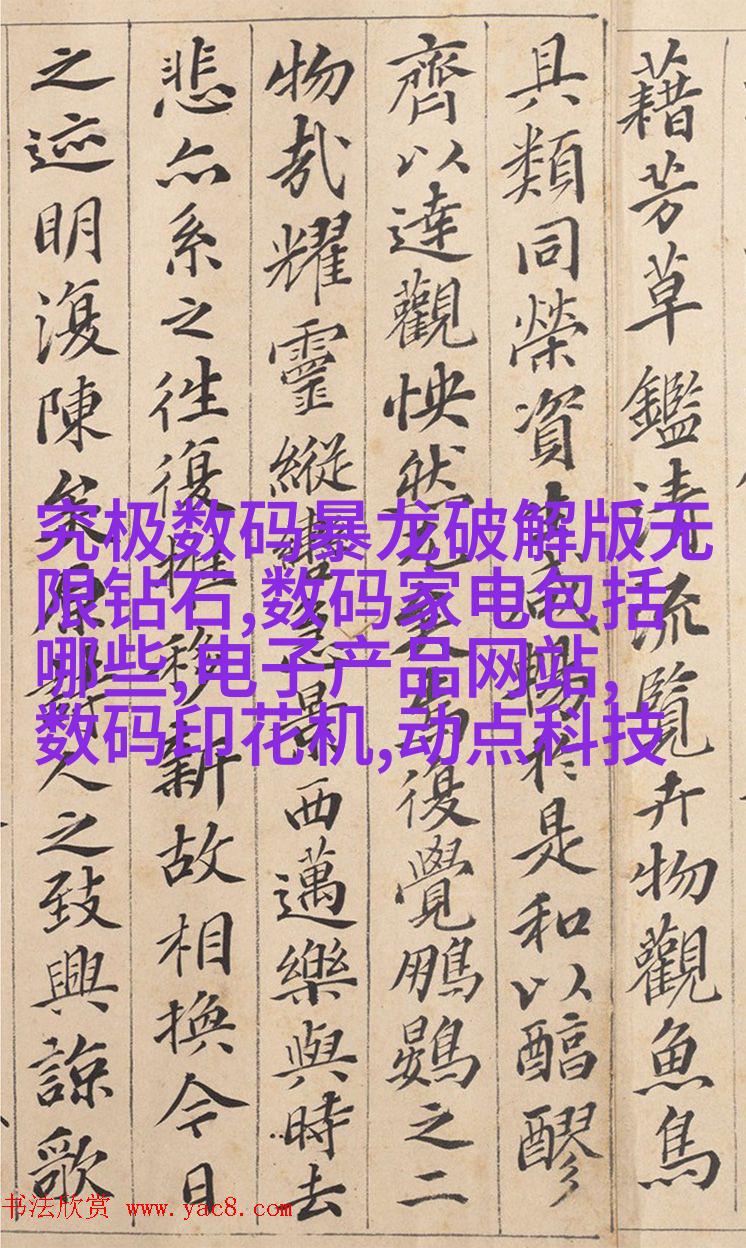 藉芳草鑑清流覽卉物觀魚鳥
具類同榮資生咸暢於是和以醇醪
齊以達觀怏然兀矣焉復覺鵬鷃之二
物哉耀靈縱轡急景西邁樂與時去
悲亦系之往復推移新故相換今日
之迹明復陳矣原詩人之致興諒歌
究极数码暴龙破解版无
限钻石,数码家电包括
哪些,电子产品网站,
数码印花机,动点科技
书法欣赏 www.yac8.com